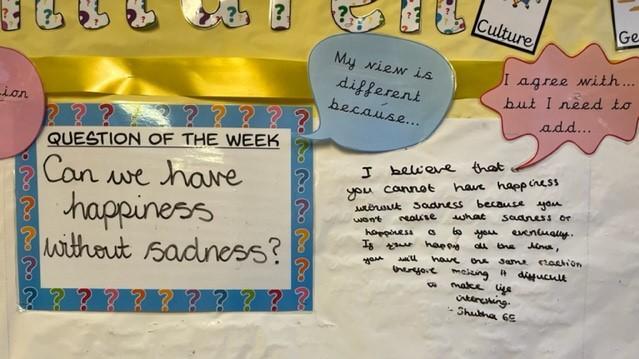 Culture
Ge
ion
My view is
different
because...
I agree with...
but I need to
add...
QUESTION OF THE WEEK
Can we have
happiness
without sadness?
I believe that
you cannot have happiness
without sadness because you
wont realise what sadness or
happiness is to you eventually.
If your happy all the time,
you will have the same reaction
therefore making it difficult
to make life
interesting.
- Shubha 6S